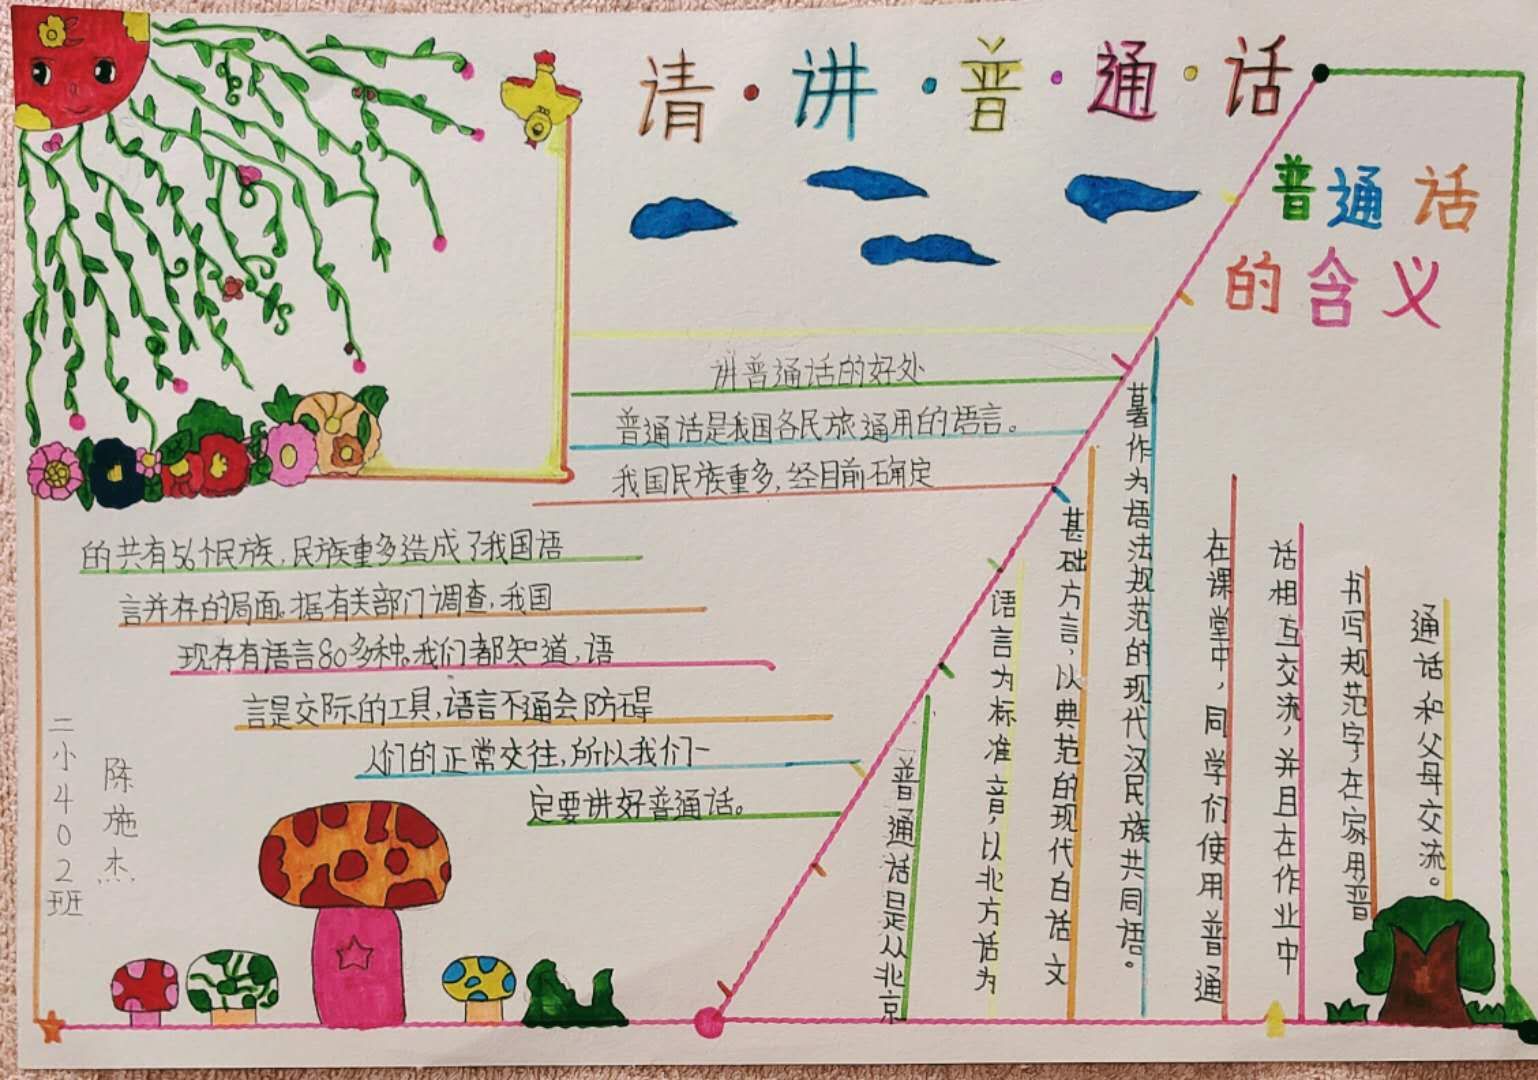 请·讲·普·通·话
讲普通话的好处
普通话是我国各民族通用的语言。
我国民族重多,经目前确定
的共有56个民族,民族重多造成了我国语
言并存的局面.据有关部门调查,我国
现存有语言80多种。我们都知道,语
言是交际的工具,语言不通会防碍
人们的正常交往,所以我们一
定要讲好普通话。
普通话
的含义
普通话是从北京
语言为标准音,以北方话为
基础方言,以典范的现代白话文
著作为语法规范的现代汉民族共同语。
在课堂中,同学们使用普通
话相互交流,并且在作业中
书写规范字,在家用普
通话和父母交流。
二小402班
陈施杰